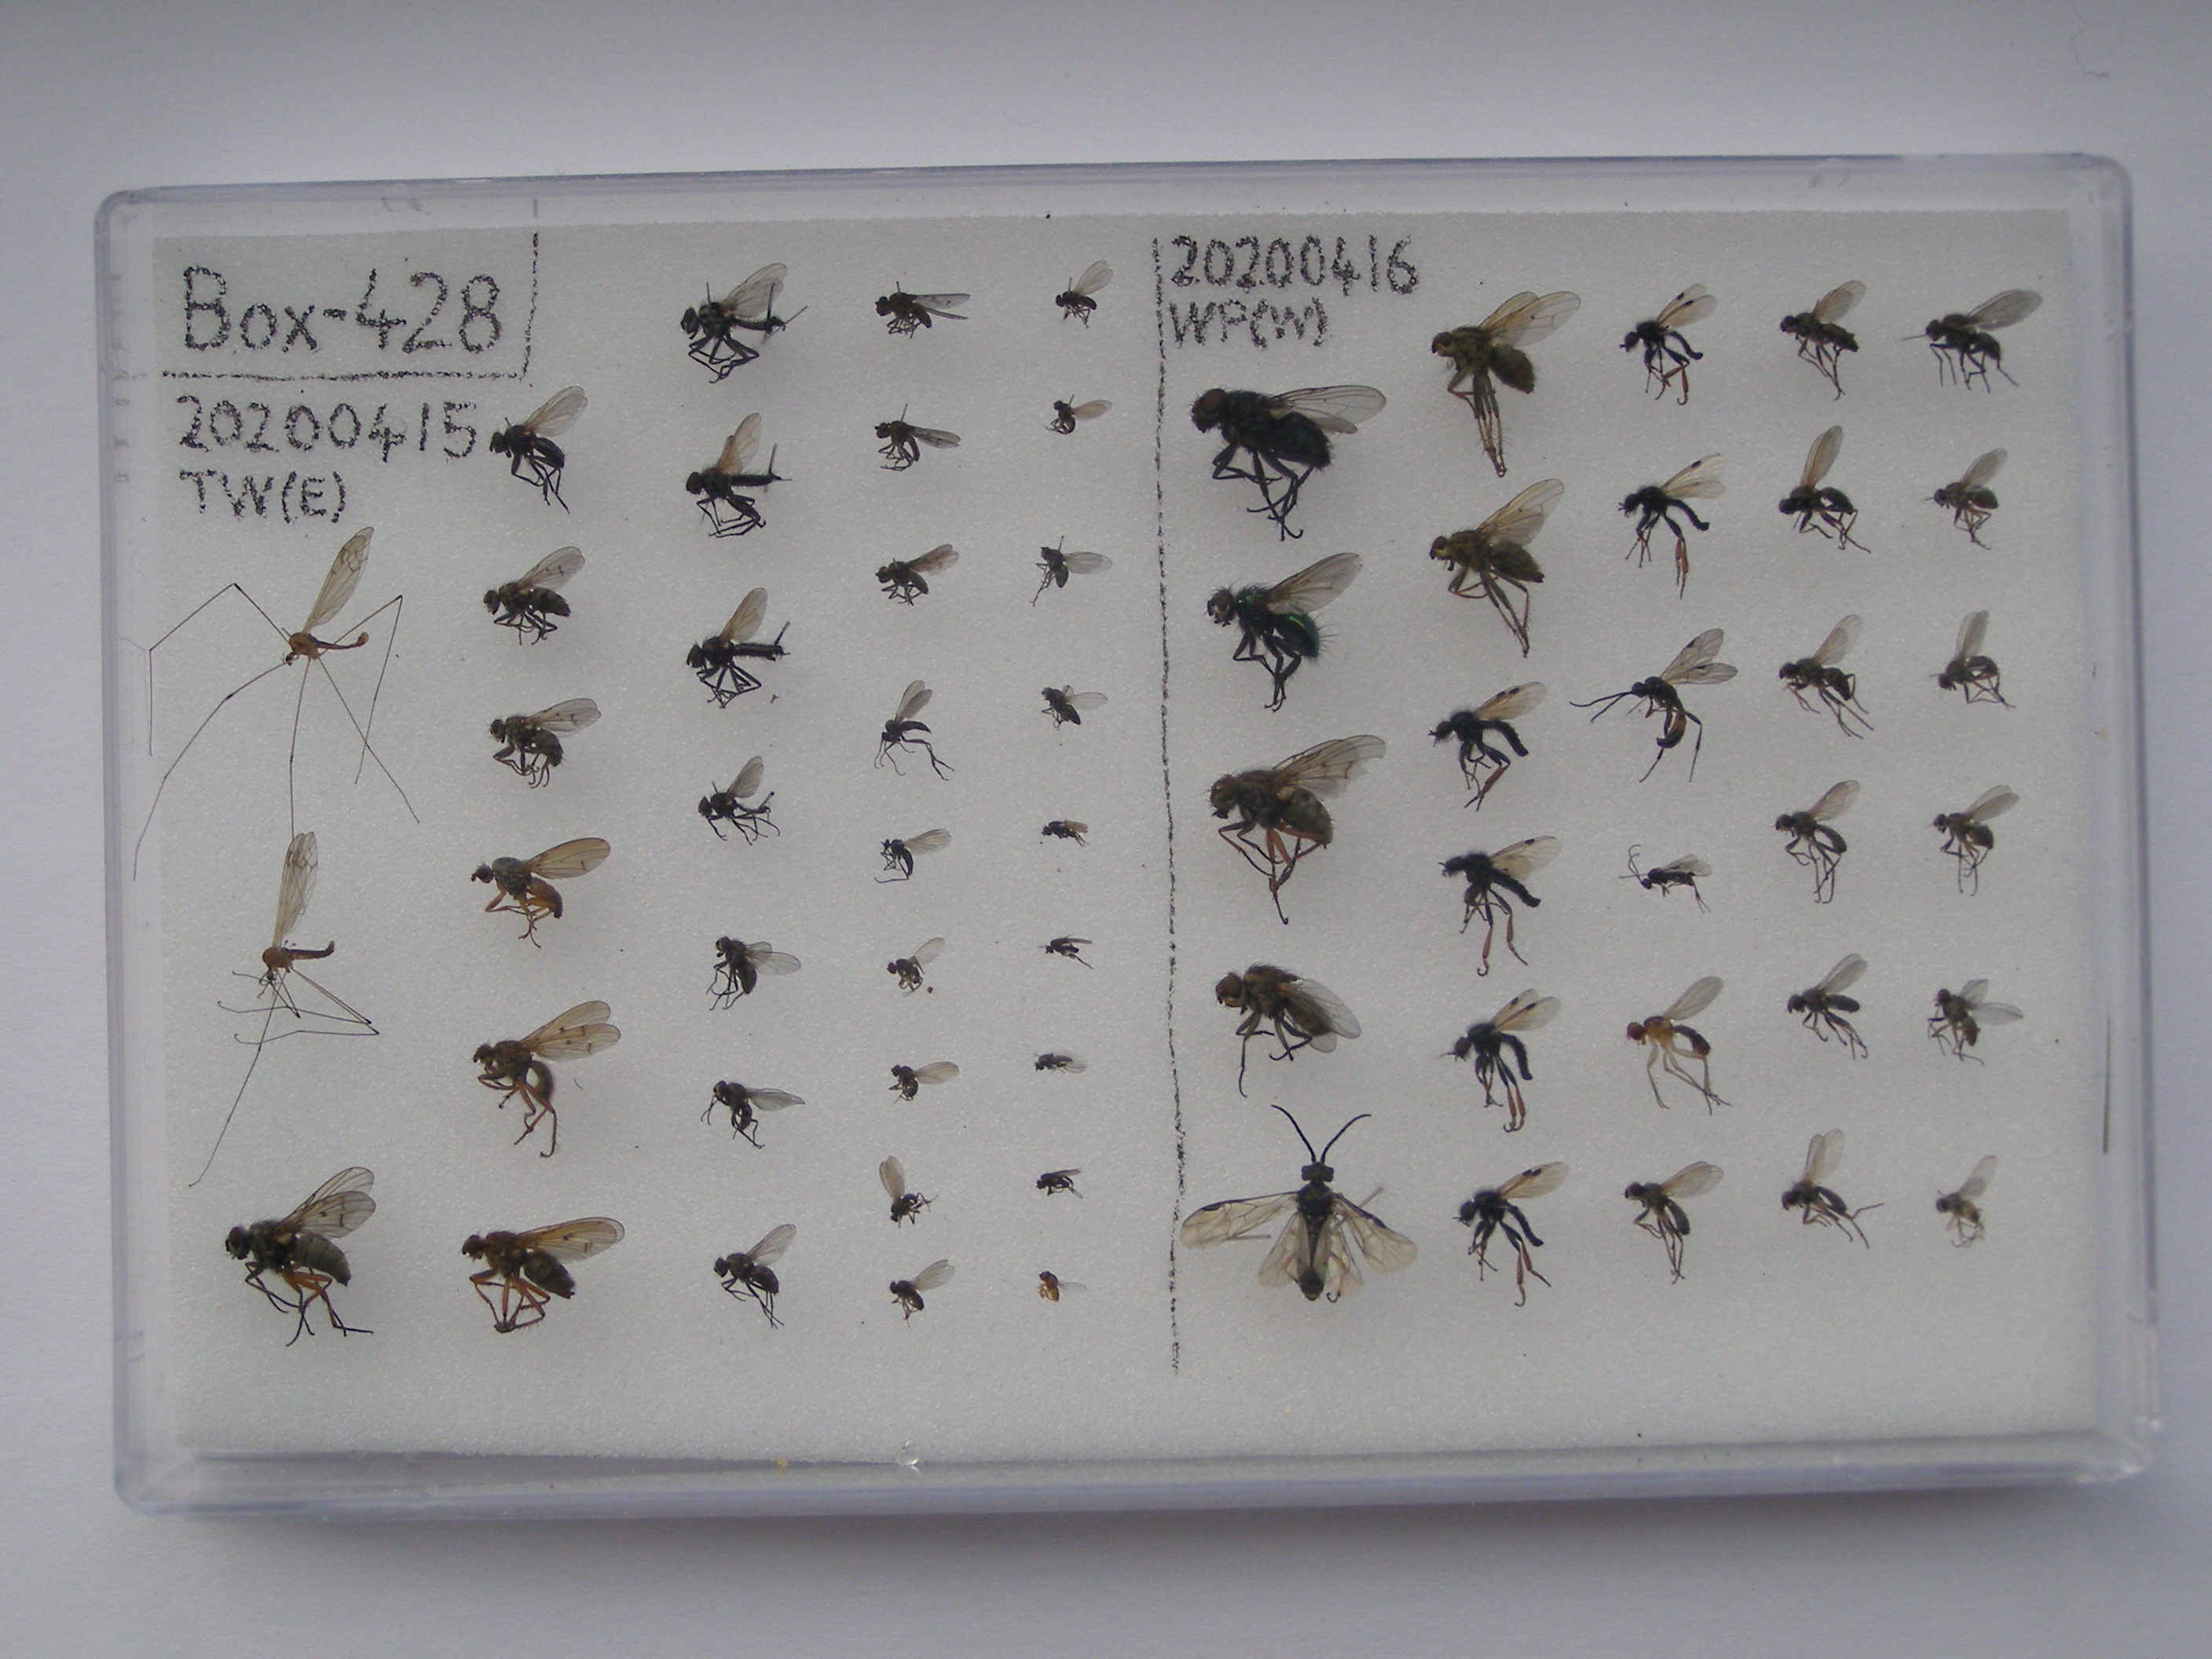 Box-428
20200415
TW(E)
20200416
WP(W)